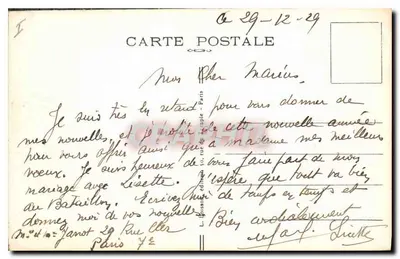 I
Ce 29-12-29
CARTE POSTALE
Mon Cher Marius,
Je suis très en retard pour vous donner de
mes nouvelles, et je profite de cette nouvelle année
pour vous offrir ainsi qu'à madame mes meilleurs
voeux. Je suis heureux de vous faire part de mon
mariage avec Lisette. J'espère, que tout va bien
au Bataillon. Ecrivez moi de temps en temps et
donnez moi de vos nouvelles
Bien cordialement
Mr et Mme Janot 29 Rue Cler
Lisette
Paris 7e